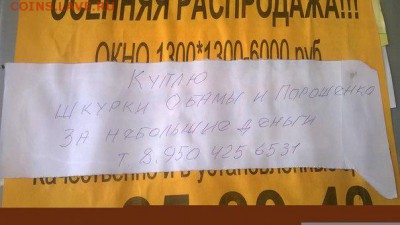 COINS.LAVE.RU
ОСЕННЯЯ РАСПРОДАЖА!!!
ОКНО 1300*1300-6000 руб
Куплю
шкурки Обамы и Порошенко
За небольшие деньги
т. 8.950 425 6531
качественно и в установленные